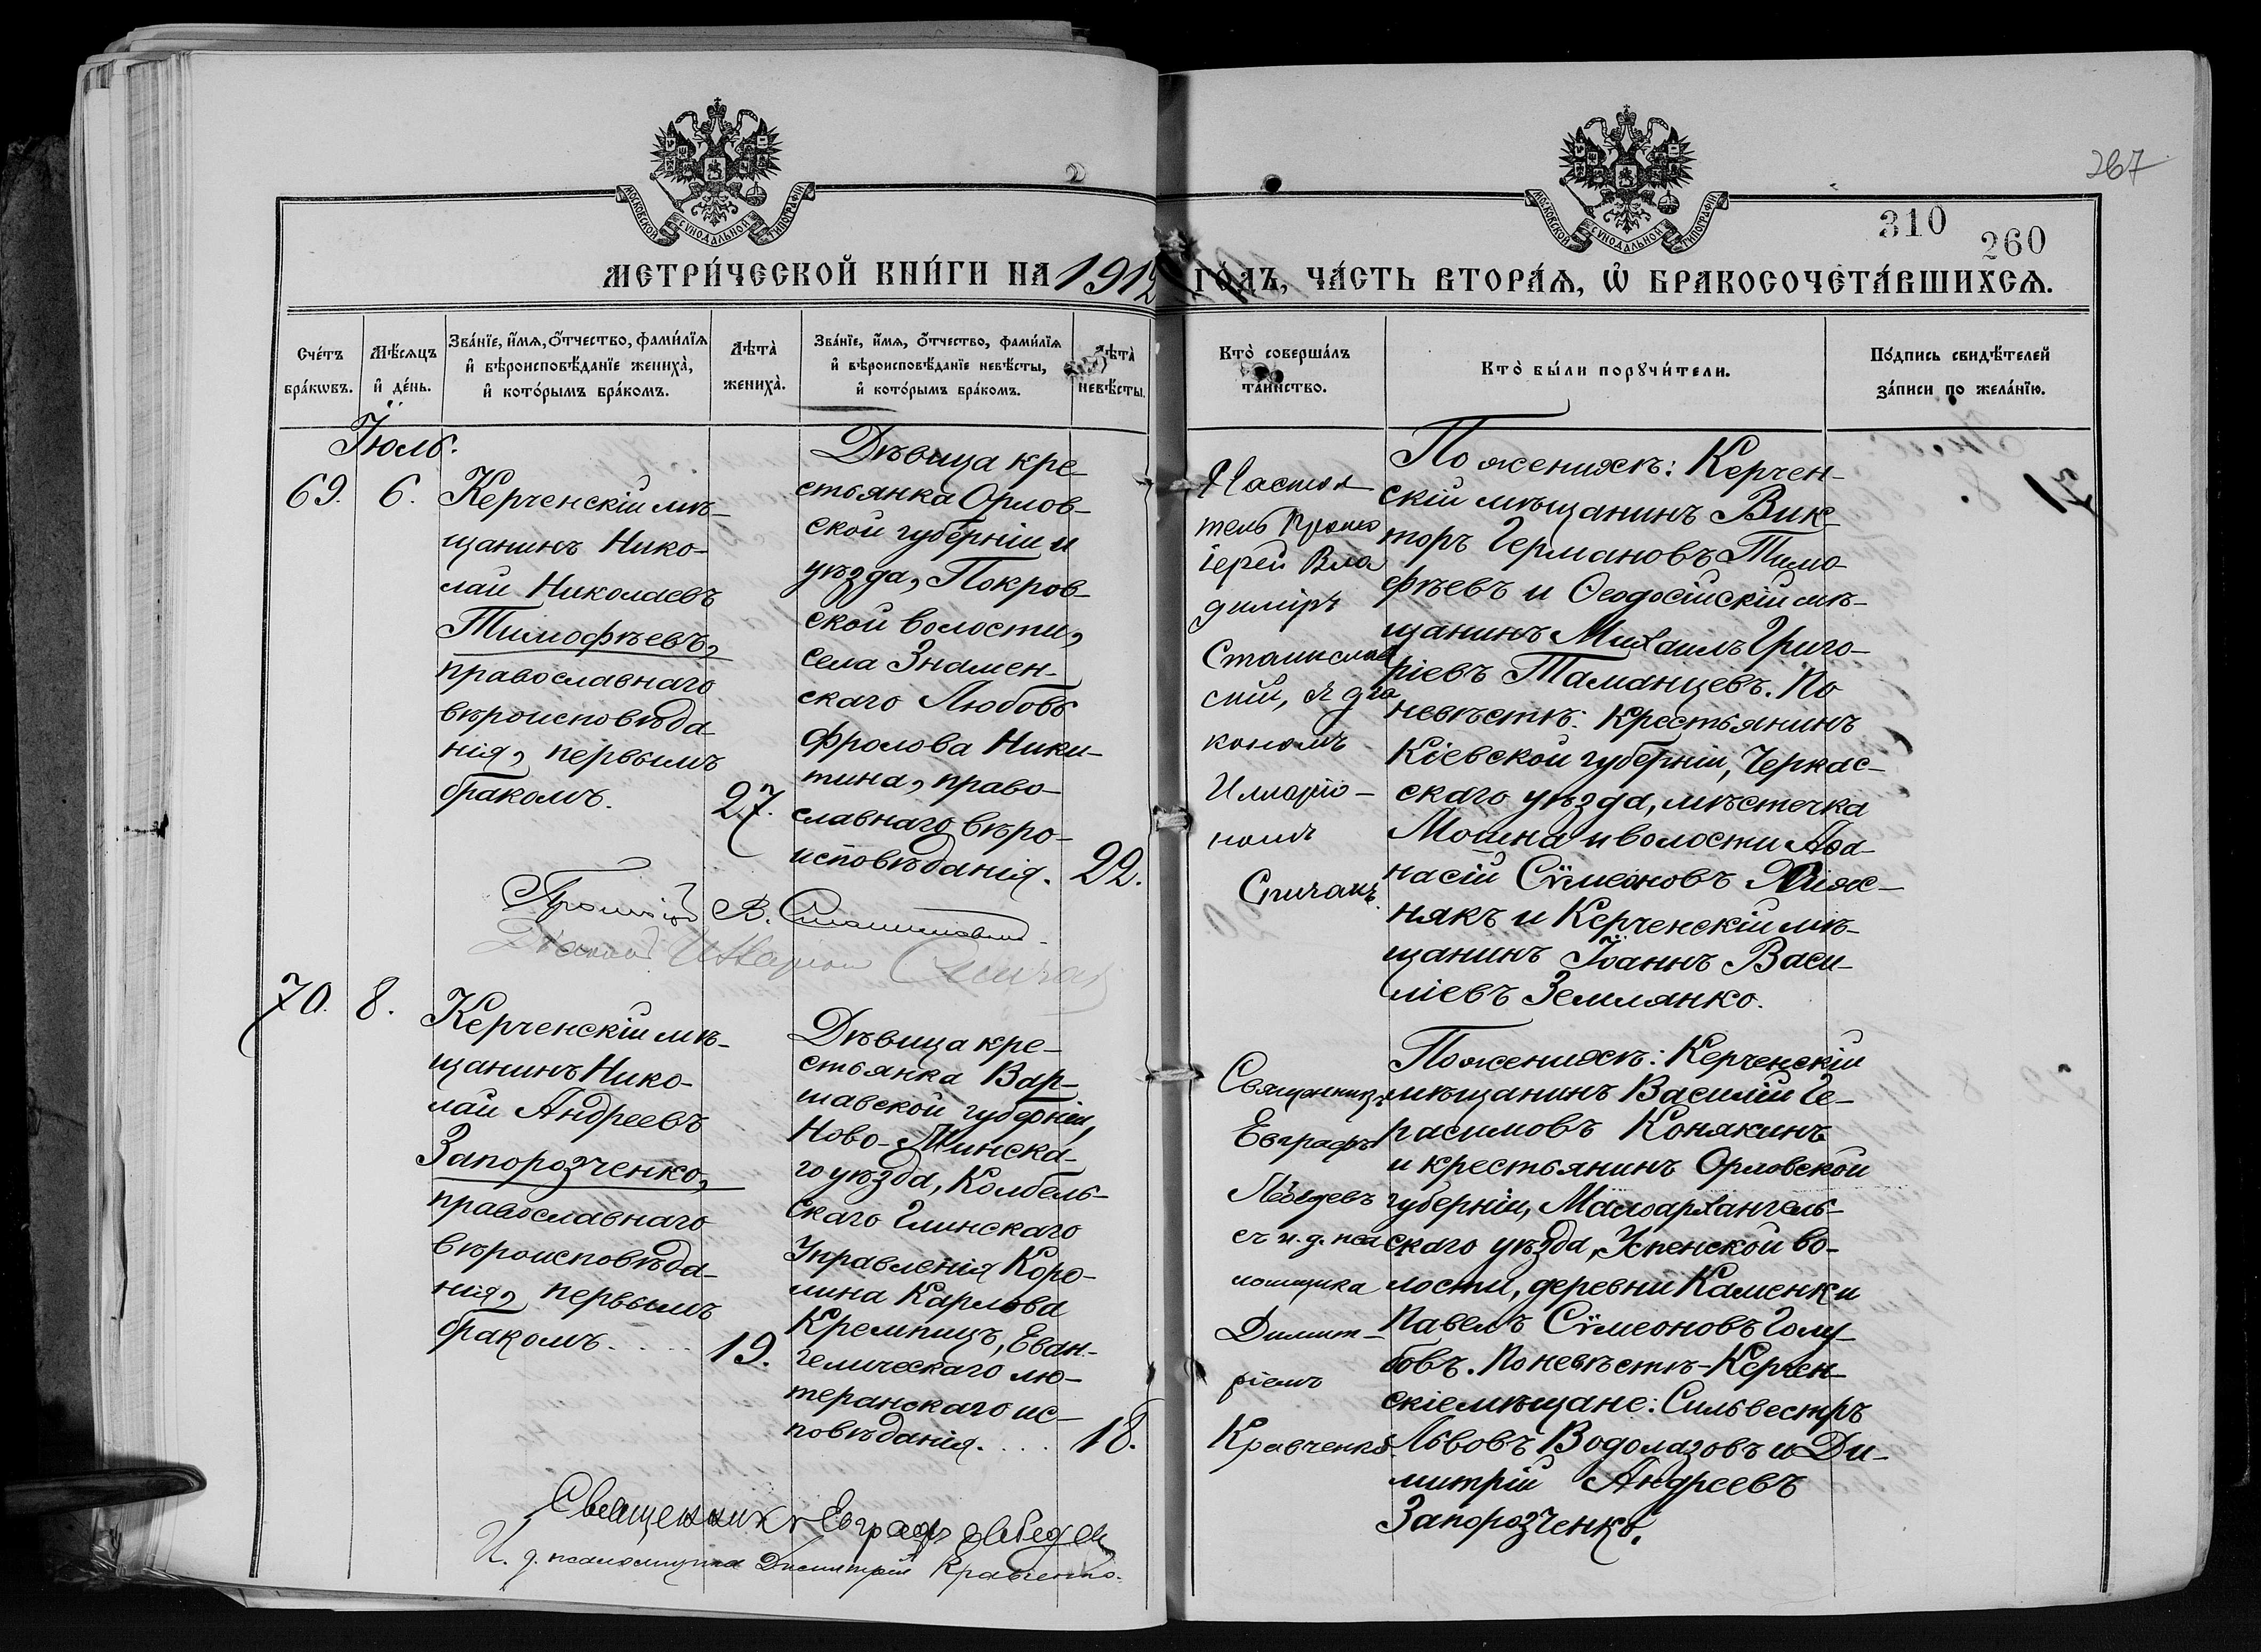 267
310
260
МОСКОВСКОЙ СУНОДАЛЬНОЙ ТИПОГРАФІИ
МОСКОВСКОЙ СУНОДАЛЬНОЙ ТИПОГРАФІИ
МЕТРИ́ЧЕСКОЙ КНИ́ГИ НА 1912 ГО́ДЪ, ЧА́СТЬ ВТОРА́Ѧ, Ѡ҆ БРАКОСОЧЕТА́ВШИХСѦ.
Сче́тъ
бра́кѡвъ.
Мѣ́сѧцъ
и҆ де́нь.
Зва́нїе, и҆́мѧ, ѻ҆́тчество, фами́лїѧ
и҆ вѣроисповѣ́данїе жениха̀,
и҆ кото́рымъ бра́комъ.
Лѣта̀
жениха̀.
Зва́нїе, и҆́мѧ, ѻ҆́тчество, фами́лїѧ
и҆ вѣроисповѣ́данїе невѣ́сты,
и҆ кото́рымъ бра́комъ.
Лѣта̀
невѣ́сты.
Кто̀ соверша́лъ
таинство.
Кто̀ бы́ли порꙋчи́тели.
По́дпись свидѣ́телей
за́писи по жела́нїю.
Іюль.
69.
6.
Керченскій мѣ-
щанинъ Нико-
лай Николаевъ
Тимофѣевъ,
православнаго
вѣроисповѣда
нія, первымъ
бракомъ.
27.
Дѣвица кре-
стьянка Орлов-
ской губерніи и
уѣзда, Покров-
ской волости,
села Знамен-
скаго Любовь
Фролова Ники-
тина, право-
славнаго вѣро-
исповѣданія.
22.
Настоя-
тель Прото
іерей Вла
димір
Станислав
скій, с дія
кономъ
Илларіо-
номъ
Спичакъ.
По женихѣ: Керчен-
скій мѣщанинъ Вик-
торъ Германовъ Тимо-
фѣевъ и Ѳеодосійскій мѣ-
щанинъ Михаилъ Григо-
ріевъ Таманцевъ. По
невѣстѣ: крестьянинъ
Кіевской губерніи, Черкас-
скаго уѣзда, мѣстечка
Мошна и волости Аѳа-
насій Сѵмеоновъ
някъ и Керченскій мѣ-
щанинъ Іоаннъ Васи-
ліевъ Землянко.
Протоіерей В. Станиславскій
Діаконъ Илларіонъ Спичакъ
70.
8.
Керченскій мѣ-
щанинъ Нико-
лай Андреевъ
Запорозченко,
православнаго
вѣроисповѣда-
нія, первымъ
бракомъ. . . . .
19.
Дѣвица кре-
стьянка Вар-
шавской губерніи,
Ново-Минска-
го уѣзда, Колбель-
скаго Глинскаго
Управленія Коро-
лина Карлова
Кремпицъ, Еван-
гелическаго лю-
теранскаго ис-
повѣданія. . . .
18.
Священникъ
Евграфъ
Лебедевъ
съ и. д. пса
ломщика
Димит-
ріемъ
Кравченко.
По женихѣ: Керченскій
мѣщанинъ Василій Ге-
расимовъ Конякинъ
и крестьянинъ Орловской
губерніи, Малоархангель-
скаго уѣзда, Успенской во-
лости, деревни Каменки
Павелъ Сѵмеоновъ Голу-
бовъ. По невѣстѣ - Керчен-
скіе мѣщане: Сильвестръ
Львовъ Водолазовъ и Ди-
митрій Андреевъ
Запорозченко.
Священникъ Евграфъ Лебедев
И. д. псаломщика Димитрій Кравченко.